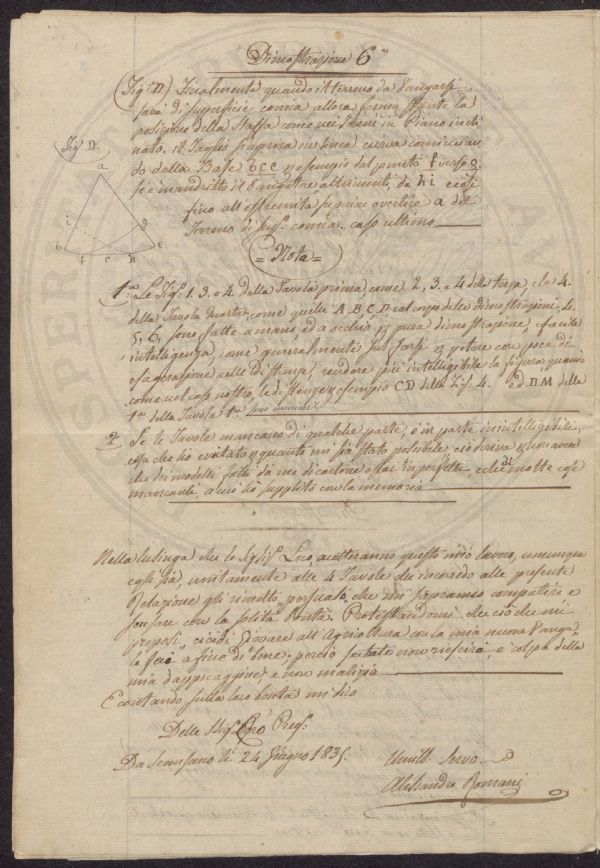 Dimostrazione 6.a
(Fig.a D.) Finalmente quando il terreno da Vangarsi
sarà di superficie conica allora ferma stante la
posizione della Staffa come nei terreni in Piano incli
nato. il Taglio si aprirà in linea curva comincian
do dalla Base bce p. esempio dal punto f verso g
se è mandritto il Vangatore altrimenti, da h i e così
fino all'estremità superiore o vertice a del
Terreno di sup.e conica. caso ultimo
Fig. D.
a
i
d
b
f
c
h
e
= Nota =
1.a Le Fig.e 1. 3. e 4. della Tavola prima, come 2, 3. e 4 della terza, e la 4.
della Tavola quarta, come quelle A. B. C. D. nel corpo delle dimostrazioni
5, 6, sono fatte a mano, ed a occhio p. pura dimostrazione, e facile
intelligenza, come generalmente suol farsi p. potere con poca di
esagerazione nelle distanze, rendere più intelligibile la figura, quando
come nel caso nostro, le distanze p. esempio CD della Fig. 4. ed D.M della
1.a della Tavola 1.a sono minime
2. Se le Tavole mancano di qualche parte, o in parte inintelligibili,
cosa che ho evitato p. quanto mi sia stato possibile ciò deriva p. non avere
che dei modelli fatti da me di cartone assai imperfetti, e di molte cose
mancanti, a cui ho supplito con la memoria
Nella lusinga che le Sig.rie Loro accetteranno questo mio lavoro, comunque
egli sia, unitamente alle 4 Tavole che in corredo alla presente
Relazione gli rimetto, persuaso che mi sapranno compatire e
scusare con la solita Bontà. Protestandomi che ciò che mi
proposi, cioè di giovare all'Agricoltura con la mia nuova Vanga
lo feci a fine di bene. perciò se tale non riescirà, è colpa della
mia dappocaggine, e non malizia
E contando sulla loro bontà mi dico
Delle Sig.rie Loro Preg.e
Da Scansano li 24 Giugno 1835.
Umil.o Servo
Alessandro Romani